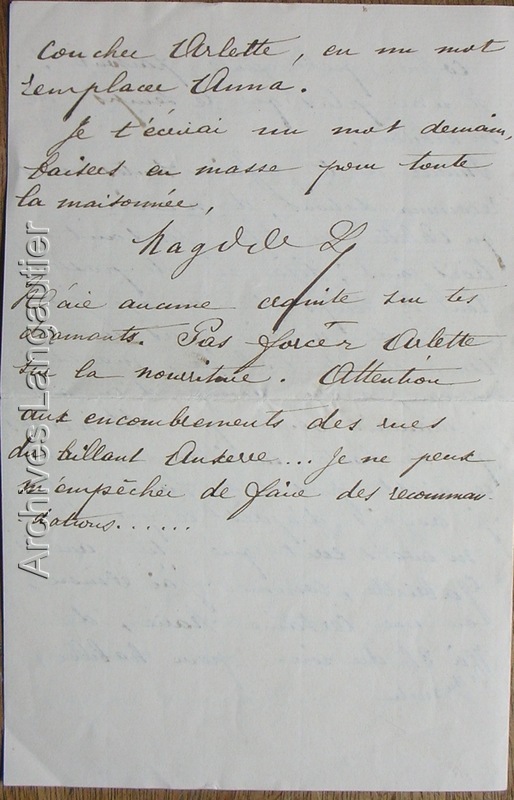 coucher Arlette, en un mot
remplacer Anna.
Je t'écrirai un mot demain,
baisers en masse pour toute
la maisonnée,
N'aie aucune crainte sur tes
diamants. Pas forcer Arlette
sur la nourriture. Attention
aux encombrements des rues
du brillant Auxerre... Je ne peux
m'empêcher de faire des recomman-
dations......
Archives Langautier